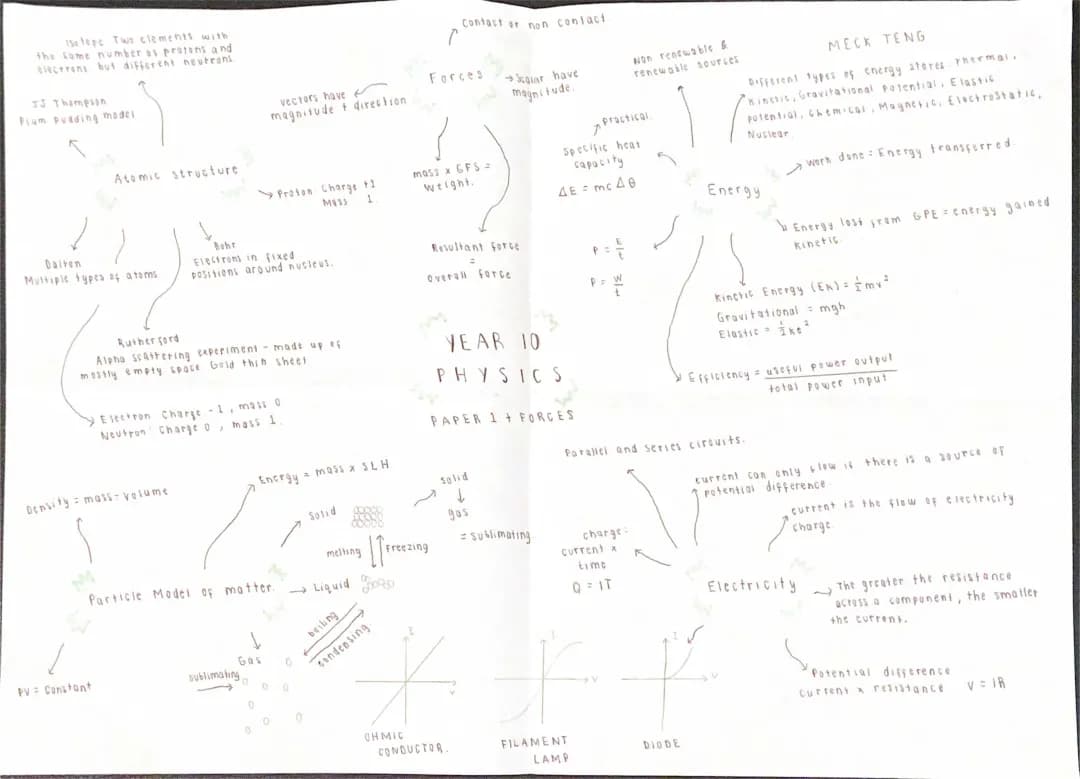 Contact or non contact
Isotope Two elements with
the same number as protons and
electrons but different neutrons.
JJ Thompson
Plum Pudding model
Atomic structure
Proton Charge +1
Mass 1.
Dalton
Multiple types of atoms
Bohr
Electrons in fixed
positions around nucleus.
Rutherford
Alpha scattering experiment - made up of
mostly empty space Gold thin sheet
Electron Charge -1, mass 0
Neutron Charge 0, mass 1.
Forces
vectors have
magnitude + direction
Scalar have
magnitude.
mass x GFS =
Weight.
Resultant force
=
overall force
YEAR 10
PHYSICS
PAPER 1 + FORCES
Non renewable &
renewable sources
MECK TENG
Different types of energy stores: Thermal,
Kinetic, Gravitational Potential, Elastic
potential, Chemical, Magnetic, Electrostatic,
Nuclear
practical.
Specific heat
capacity
ΔE = mcΔθ
Energy
Work done = Energy transferred
Energy lost from GPE = energy gained
Kinetic.
P = E/t
P = W/t
Kinetic Energy (Ek) = ½mv²
Gravitational = mgh
Elastic = ½ke²
Efficiency = useful power output
total power input
Density = mass ÷ volume
Energy = mass x SLH
Solid
melting
Freezing
solid
gas
= sublimating.
Particle Model of matter.
Liquid
boiling
condensing.
Gas
sublimating
PV = Constant
I
V
OHMIC
CONDUCTOR.
I
V
FILAMENT
LAMP
I
V
DIODE
Parallel and Series circuits.
current can only flow if there is a source of
potential difference
current is the flow of electricity
charge.
charge:
current x
time
Q = IT
Electricity
The greater the resistance
across a component, the smaller
the current.
Potential difference
current x resistance V = IR